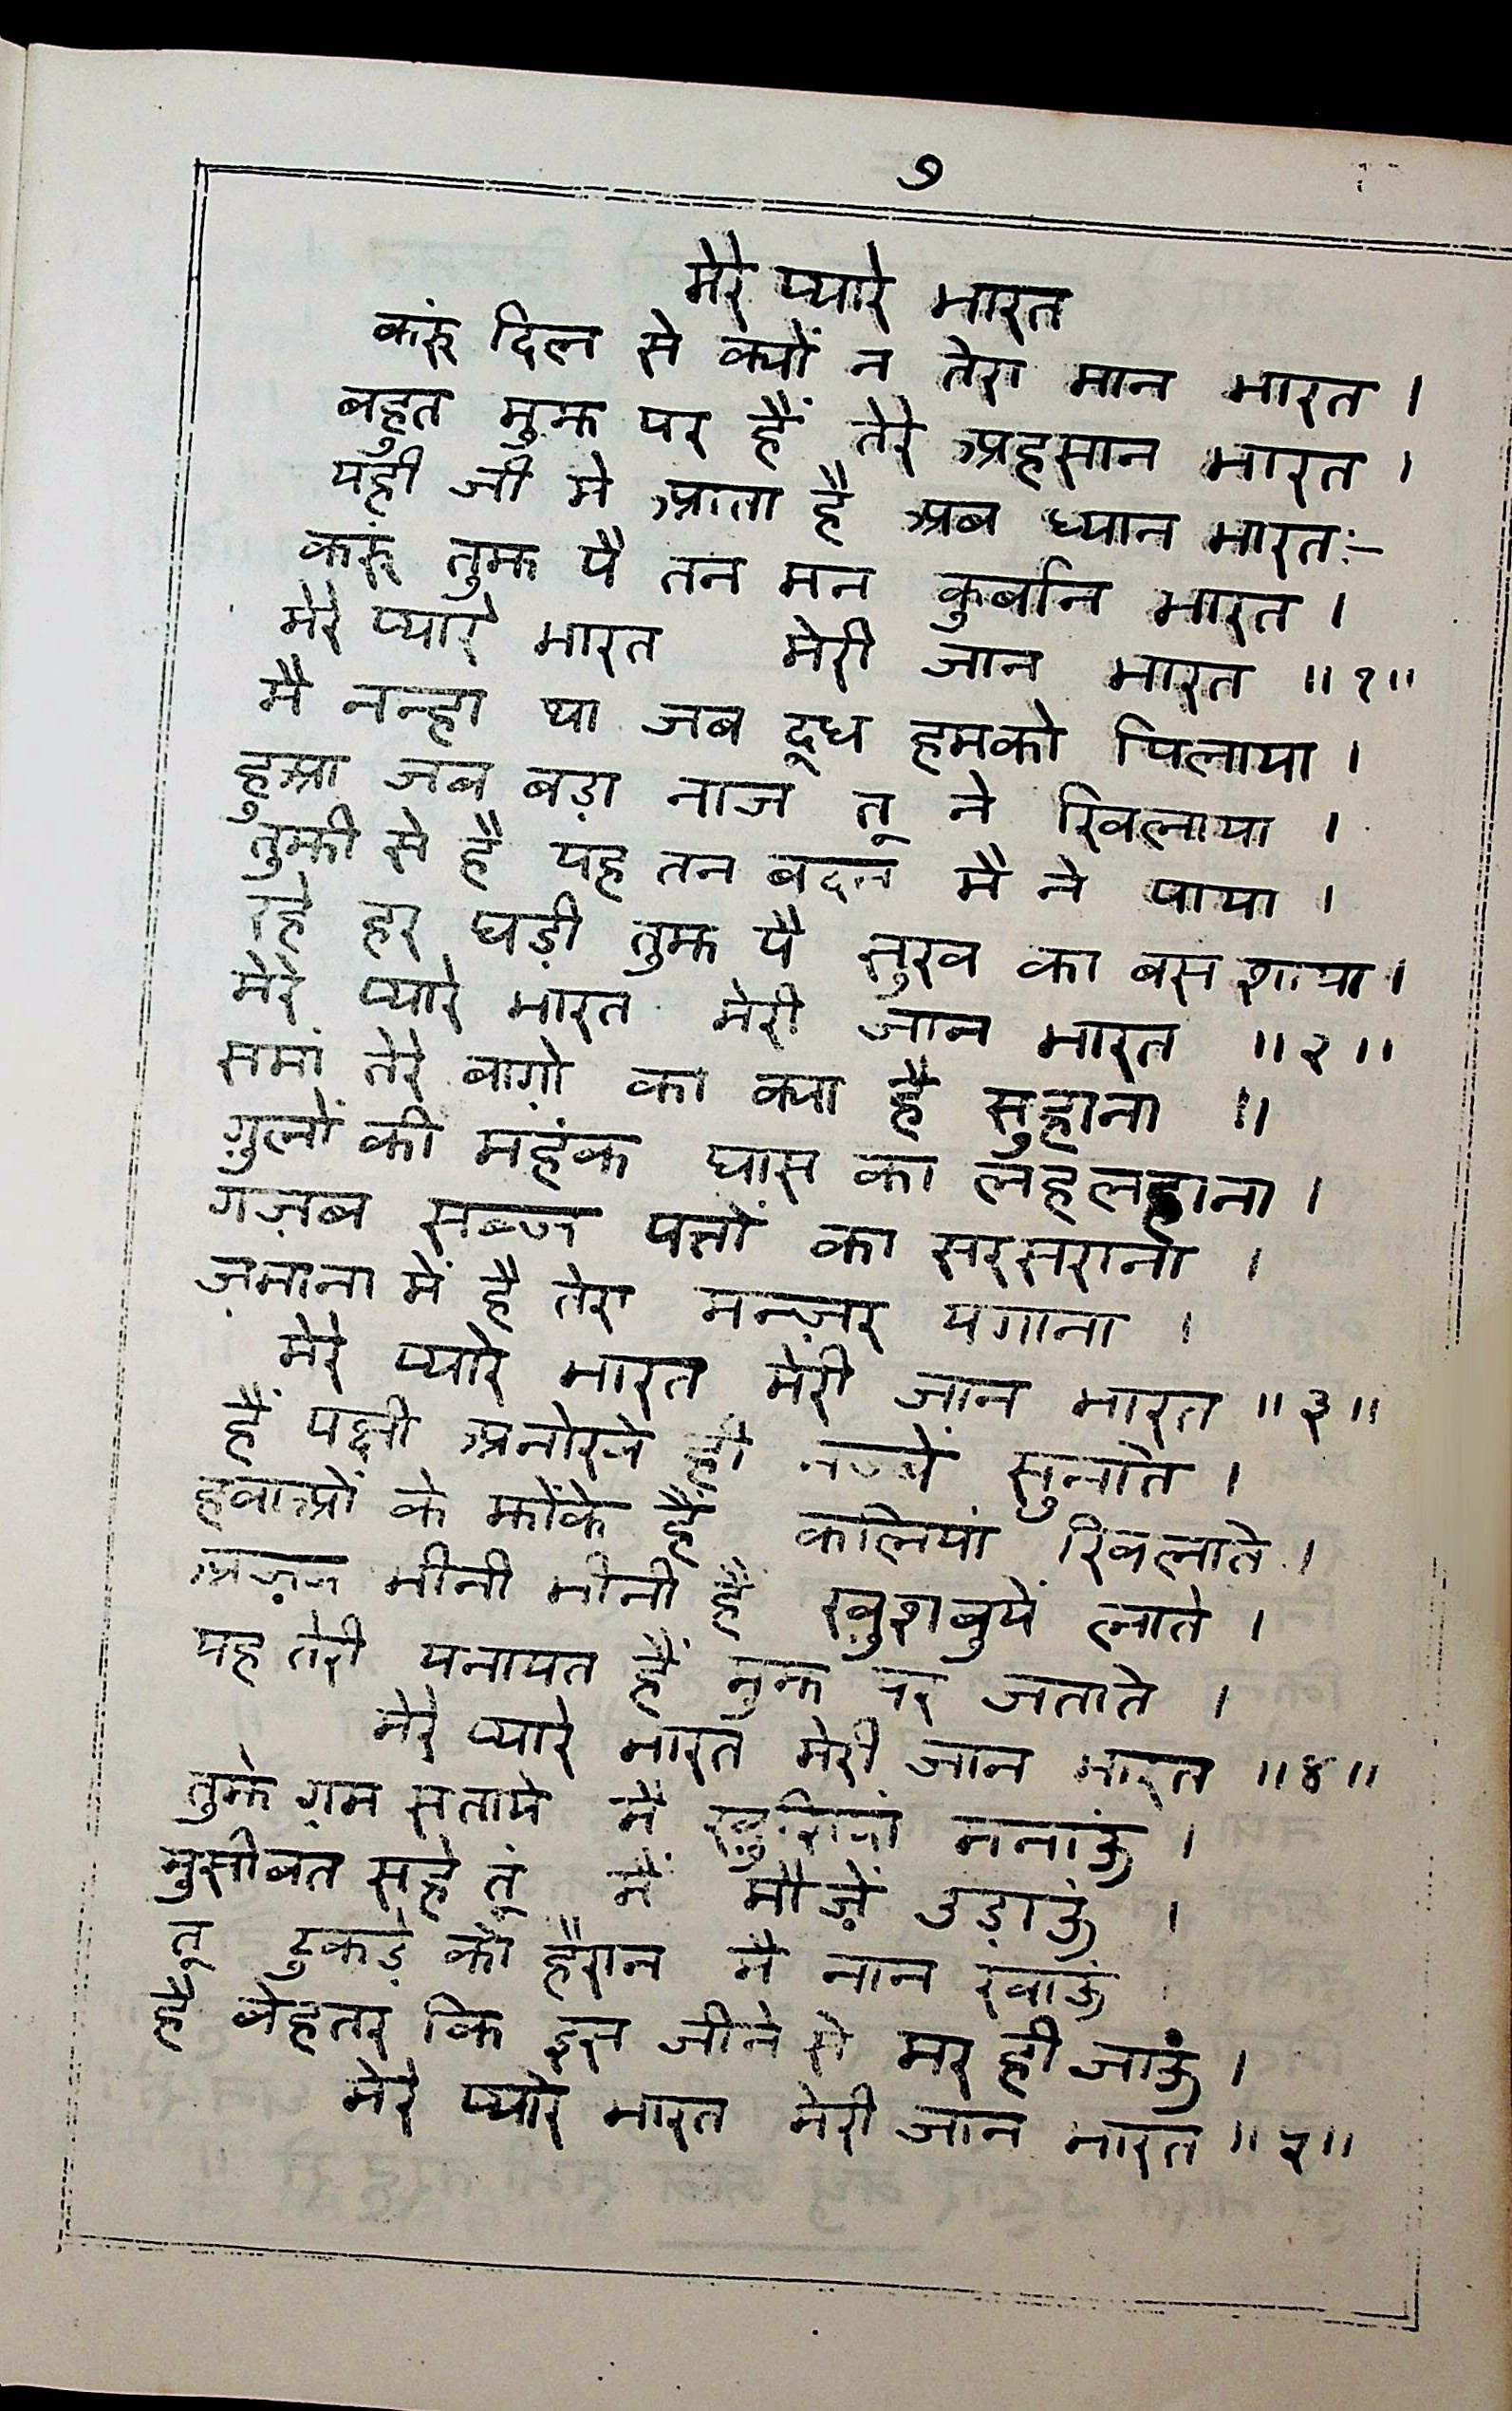 ७
मेरे प्यारे भारत
करूं दिल से क्यों न तेरा मान भारत ।
बहुत मुझ पर हैं तेरे अहसान भारत ।
यही जी मे आता है अब ध्यान भारत:-
करूं तुझ पै तन मन कुर्बान भारत ।
मेरे प्यारे भारत मेरी जान भारत ॥१॥
मै नन्हा था जब दूध हमको पिलाया ।
हुआ जब बड़ा नाज तू ने खिलाया ।
तुझी से है यह तन बदन मै ने पाया ।
रहे हर घड़ी तुझ पै सुख का बस शाया ।
मेरे प्यारे भारत मेरी जान भारत ॥२॥
समां तेरे बाग़ो का क्या है सुहाना ॥
गुलों की महंक घास का लहलहाना ।
गज़ब सब्ज पत्तों का सरसराना ।
ज़माना में है तेरा मन्ज़र यगाना ।
मेरे प्यारे भारत मेरी जान भारत ॥३॥
हैं पक्षी अनोखे ही सुनाते ।
हवाओं के झोंके हैं कलियां खिलाते ।
अज़ब भीनी भीनी हैं ख़ुशबुयें लाते ।
यह तेरी यनायत हैं मुझ पर जताते ।
मेरे प्यारे भारत मेरी जान भारत ॥४॥
तुझे ग़म सतायें मै ख़ुशियां मनाऊं ।
मुसीबत सहे तूं मैं मौज़ें उड़ाऊं ।
तू टुकड़े को हैरान मै नान खाऊं ।
है बेहतर कि इस जीने से मर ही जाऊं ।
मेरे प्यारे भारत मेरी जान भारत ॥५॥